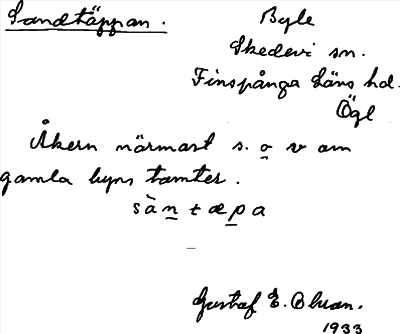 Sandtäppan.
Byle
Skedevi sn.
Finspånga Läns hd.
Ögl
Åkern närmast s. o v om
gamla byns tomter.
sàntæpa
Gustaf E. Olsson.
1933